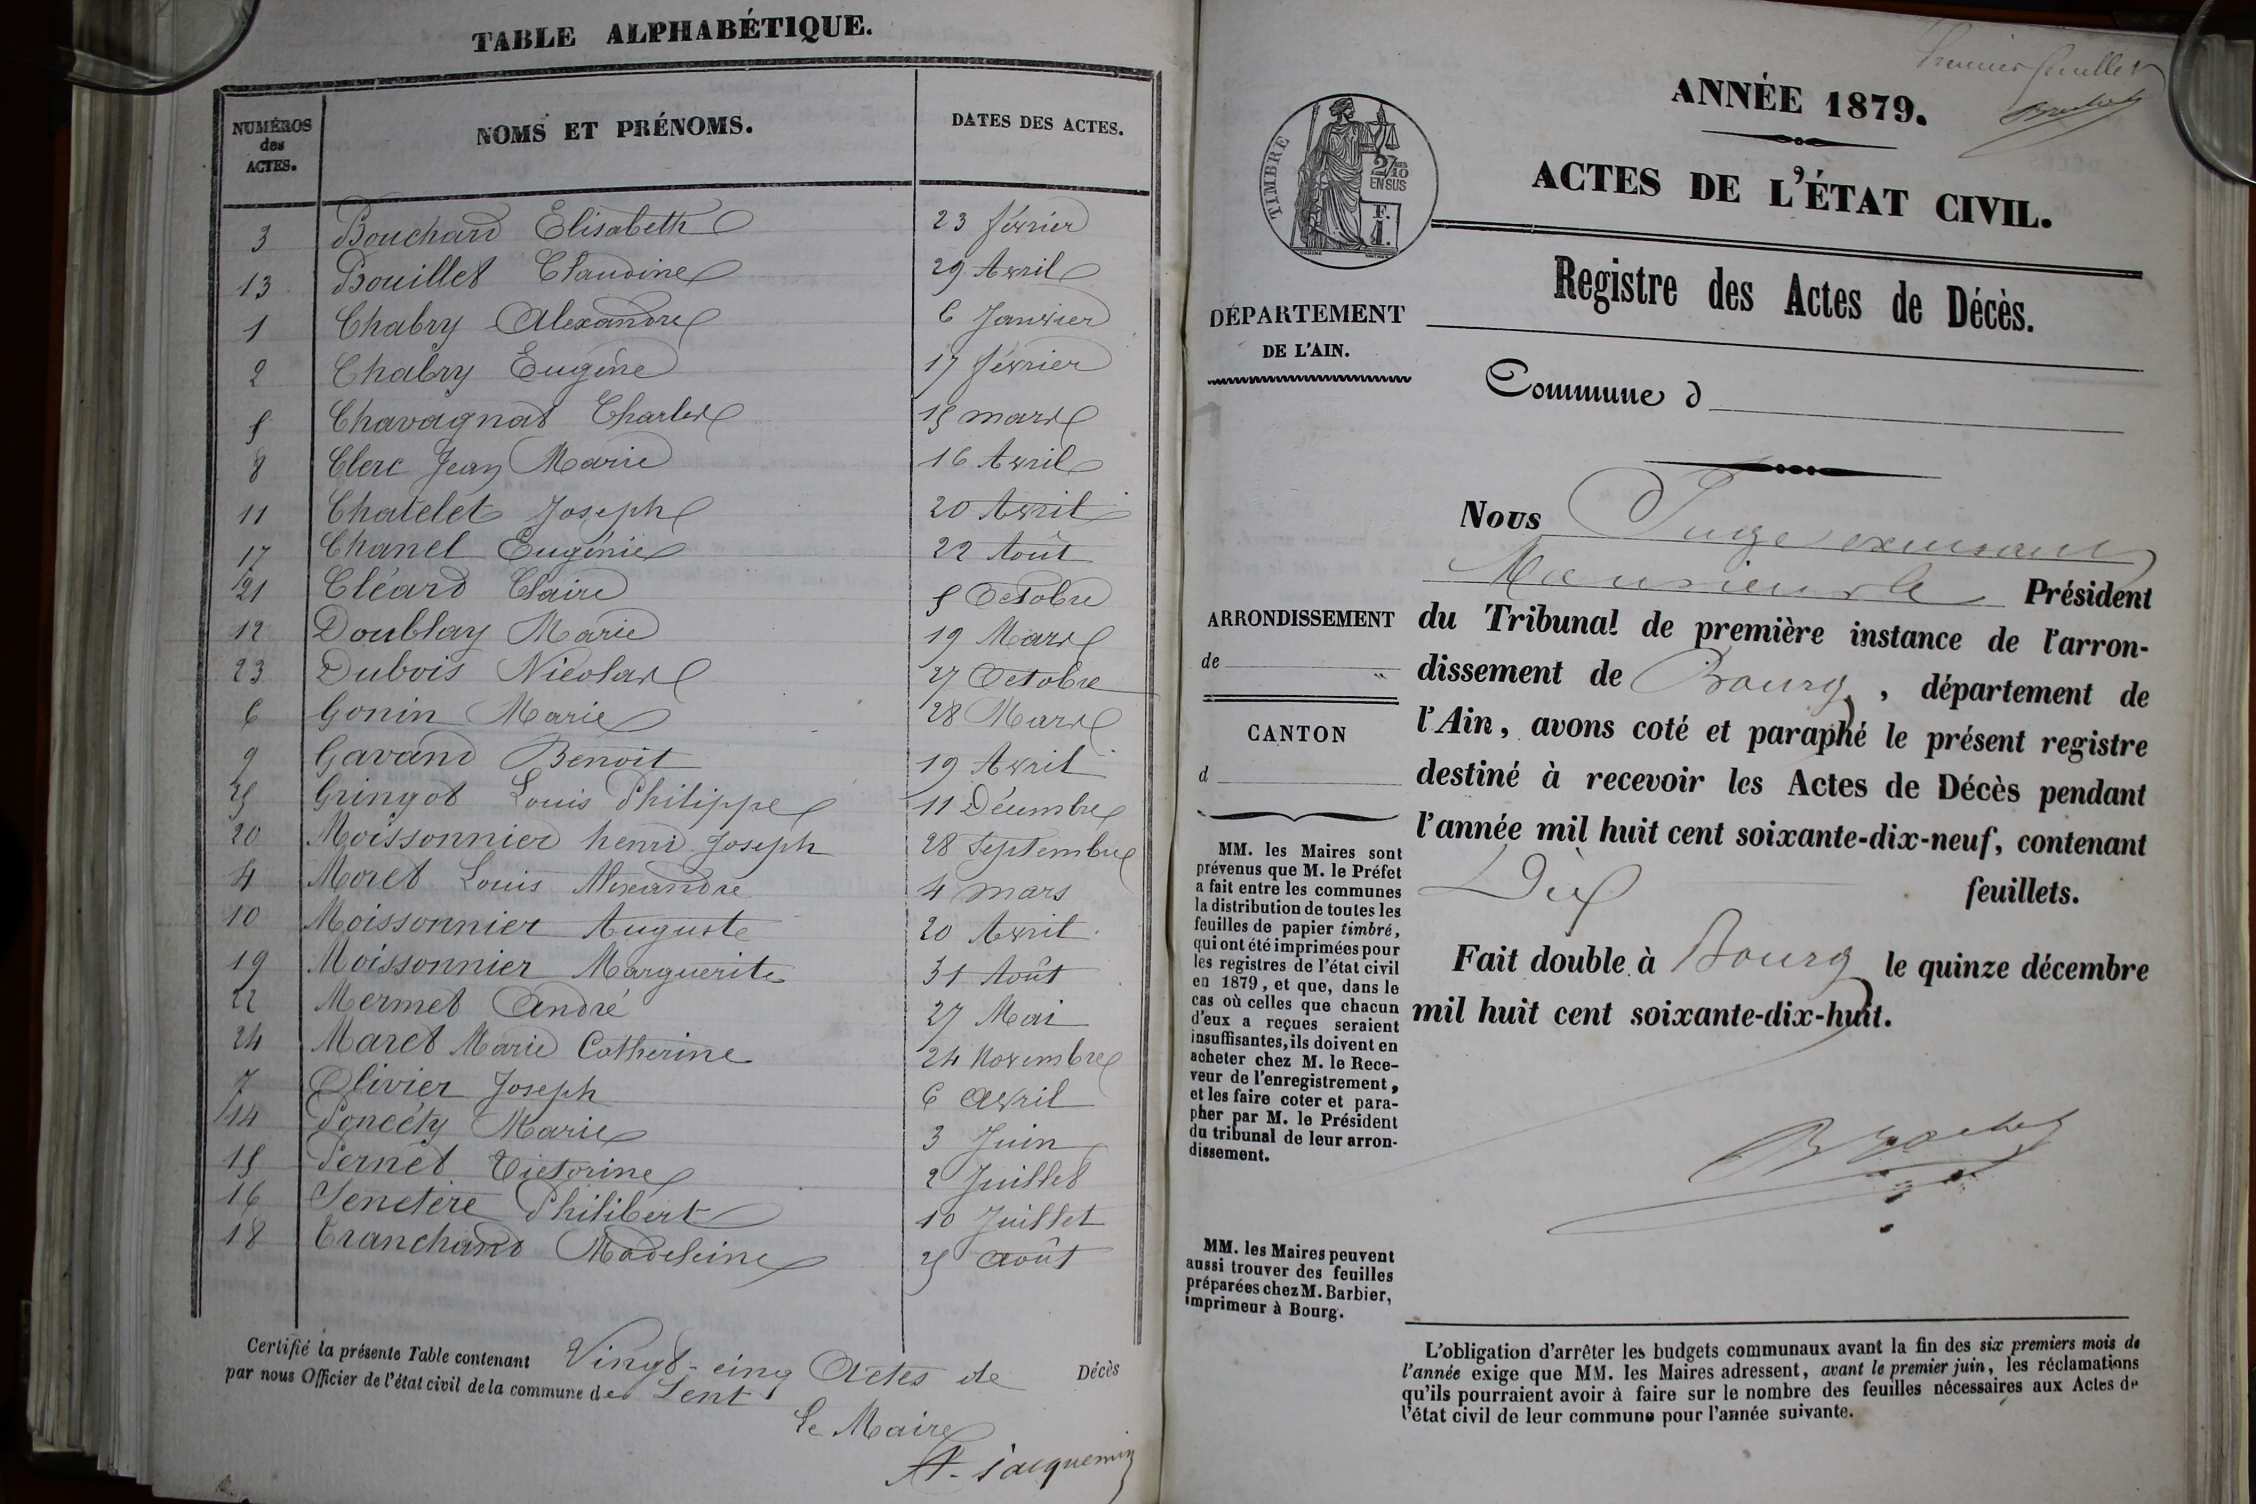 TABLE ALPHABÉTIQUE.
NUMÉROS des ACTES. NOMS ET PRÉNOMS. DATES DES ACTES.
3 Bouchard Elisabeth 23 février
13 Bouillet Claudine 29 Avril
1 Chabry Alexandre 6 Janvier
2 Chabry Eugène 17 février
5 Chavagnat Charles 15 mars
8 Clerc Jean Marie 16 Avril
11 Chatelet Joseph 20 Avril
17 Chanel Eugénie 22 Août
21 Cléard Claire 5 Octobre
12 Doublay Marie 19 Mars
23 Dubois Nicolas 27 Octobre
6 Gonin Marie 28 Mars
9 Gavand Benoit 19 Avril
25 Gringot Louis Philippe 11 Décembre
20 Moissonnier henri Joseph 28 Septembre
4 Moret Louis Alexandre 4 mars
10 Moissonnier Auguste 20 Avril
19 Moissonnier Marguerite 31 Août
22 Mermet André 27 Mai
24 Maret Marie Catherine 24 Novembre
7 Olivier Joseph 6 Avril
14 Poncéty Marie 3 Juin
15 Pernet Victorine 2 Juillet
16 Senetère Philibert 10 Juillet
18 Tranchand Madeleine 25 Août
Certifié la présente Table contenant Vingt-cinq Actes de Décès
par nous Officier de l'état civil de la commune de Lent
Le Maire
A. Jacquemin
Premier feuillet
ANNÉE 1879.
TIMBRE
2/10
EN SUS
F.
1.
ACTES DE L'ÉTAT CIVIL.
Registre des Actes de Décès.
DÉPARTEMENT
DE L'AIN.
Commune d
ARRONDISSEMENT
de
CANTON
d
MM. les Maires sont
prévenus que M. le Préfet
a fait entre les communes
la distribution de toutes les
feuilles de papier timbré,
qui ont été imprimées pour
les registres de l'état civil
en 1879, et que, dans le
cas où celles que chacun
d'eux a reçues seraient
insuffisantes, ils doivent en
acheter chez M. le Rece-
veur de l'enregistrement,
et les faire coter et para-
pher par M. le Président
du tribunal de leur arron-
dissement.
MM. les Maires peuvent
aussi trouver des feuilles
préparées chez M. Barbier,
imprimeur à Bourg.
Nous Juge
Monsieur le Président
du Tribunal de première instance de l'arron-
dissement de Bourg, département de
l'Ain, avons coté et paraphé le présent registre
destiné à recevoir les Actes de Décès pendant
l'année mil huit cent soixante-dix-neuf, contenant
Dix feuillets.
Fait double à Bourg le quinze décembre
mil huit cent soixante-dix-huit.
L'obligation d'arrêter les budgets communaux avant la fin des six premiers mois de
l'année exige que MM. les Maires adressent, avant le premier juin, les réclamations
qu'ils pourraient avoir à faire sur le nombre des feuilles nécessaires aux Actes de
l'état civil de leur commune pour l'année suivante.